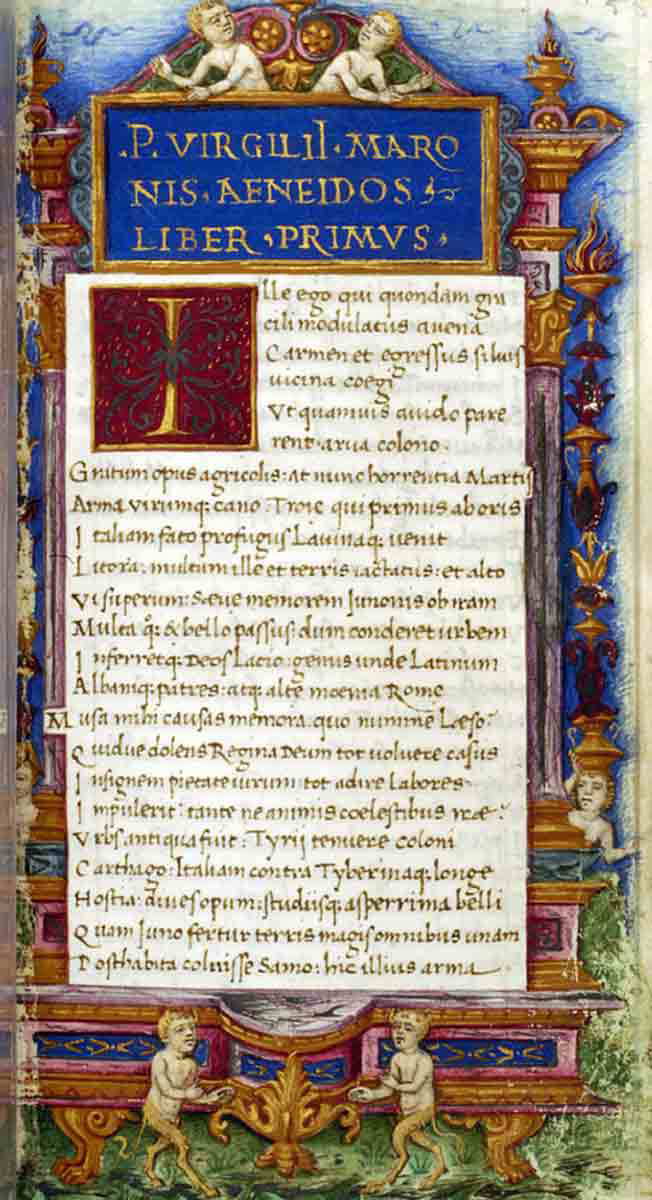 .P. VIRGILII . MARO
NIS . AENEIDOS
LIBER , PRIMVS ,
Ille ego qui quondam gra
cili modulatus avena
Carmen et egressus siluis
uicina coegi
Vt quamuis auido pare
rent. arua colono.
Gratum opus agricolis: at nunc horrentia Martis
Arma virumq; cano: Troie qui primus ab oris
Italiam fato profugus Lavinaq; uenit
Litora: multum ille et terris iactatus: et alto
Vi superum: Sæue memorem Junonis ob iram
Multa q; & bello passus: dum conderet urbem
Inferretq; Deos Lacio: genus unde Latinum
Albaniq; patres: atq; alte moenia Rome
Musa mihi causas memora. quo numine Læso?
Quidue dolens Regina Deum tot voluere casus
Insignem pietate uirum: tot adire Labores.
Impulerit: tante ne animis coelestibus iræ?
Vrbs antiqua fuit: Tyrii tenuere coloni
Carthago: Italiam contra Tyberinaq; longe
Hostia: diues opum: studiisq; asperrima belli
Quam Juno fertur terris magis omnibus unam
Posthabita coluisse Samo: hic illius arma